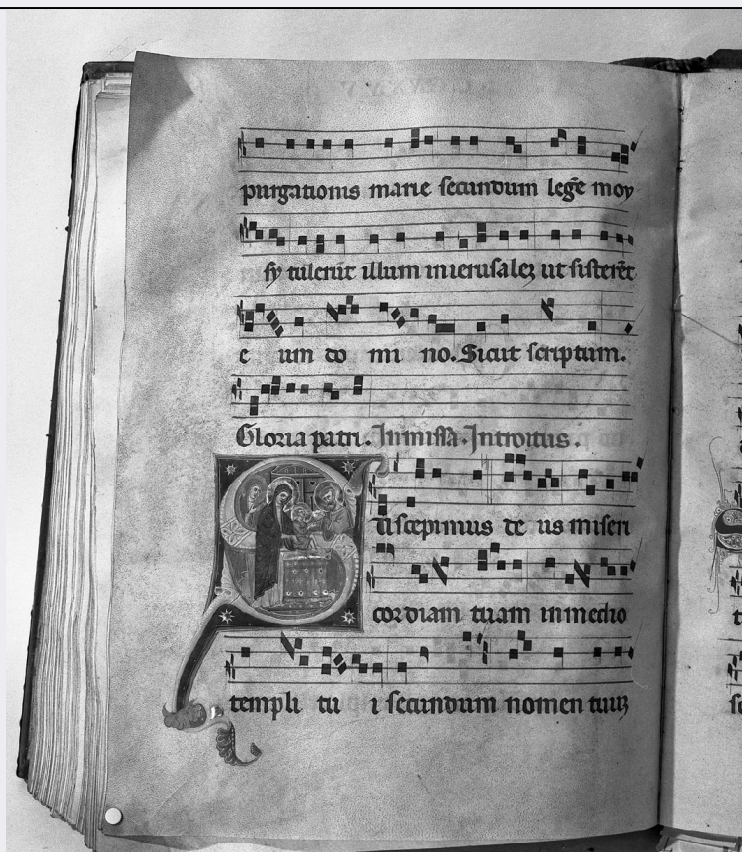 purgationis marie secundum legē moy
sy tulerūt illum in ierusalez ut sisterēt
e um do mi no. Sicut scriptum.
Gloria patri. In missa. Introitus.
Suscepimus de us miseri
cordiam tuam in medio
templi tu i secundum nomen tuuz